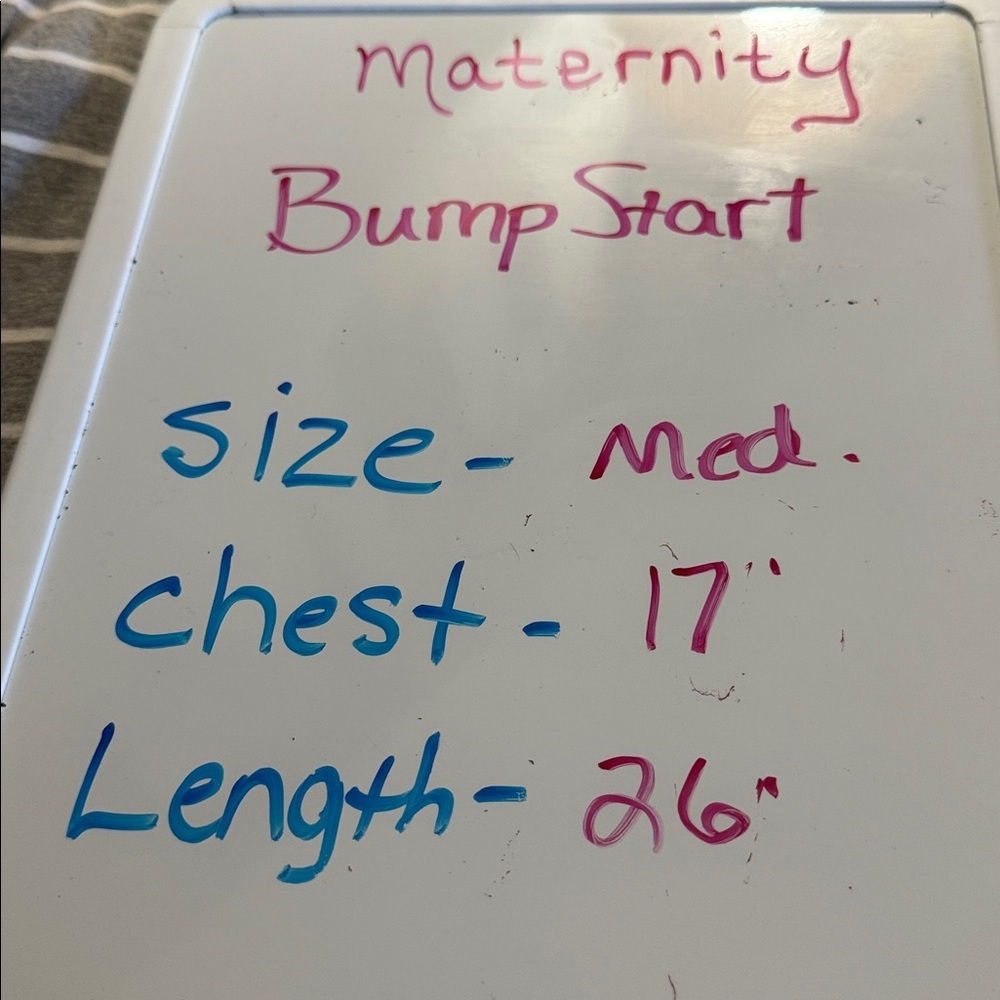 Maternity
Bump Start
size - Med.
chest - 17"
Length - 26"